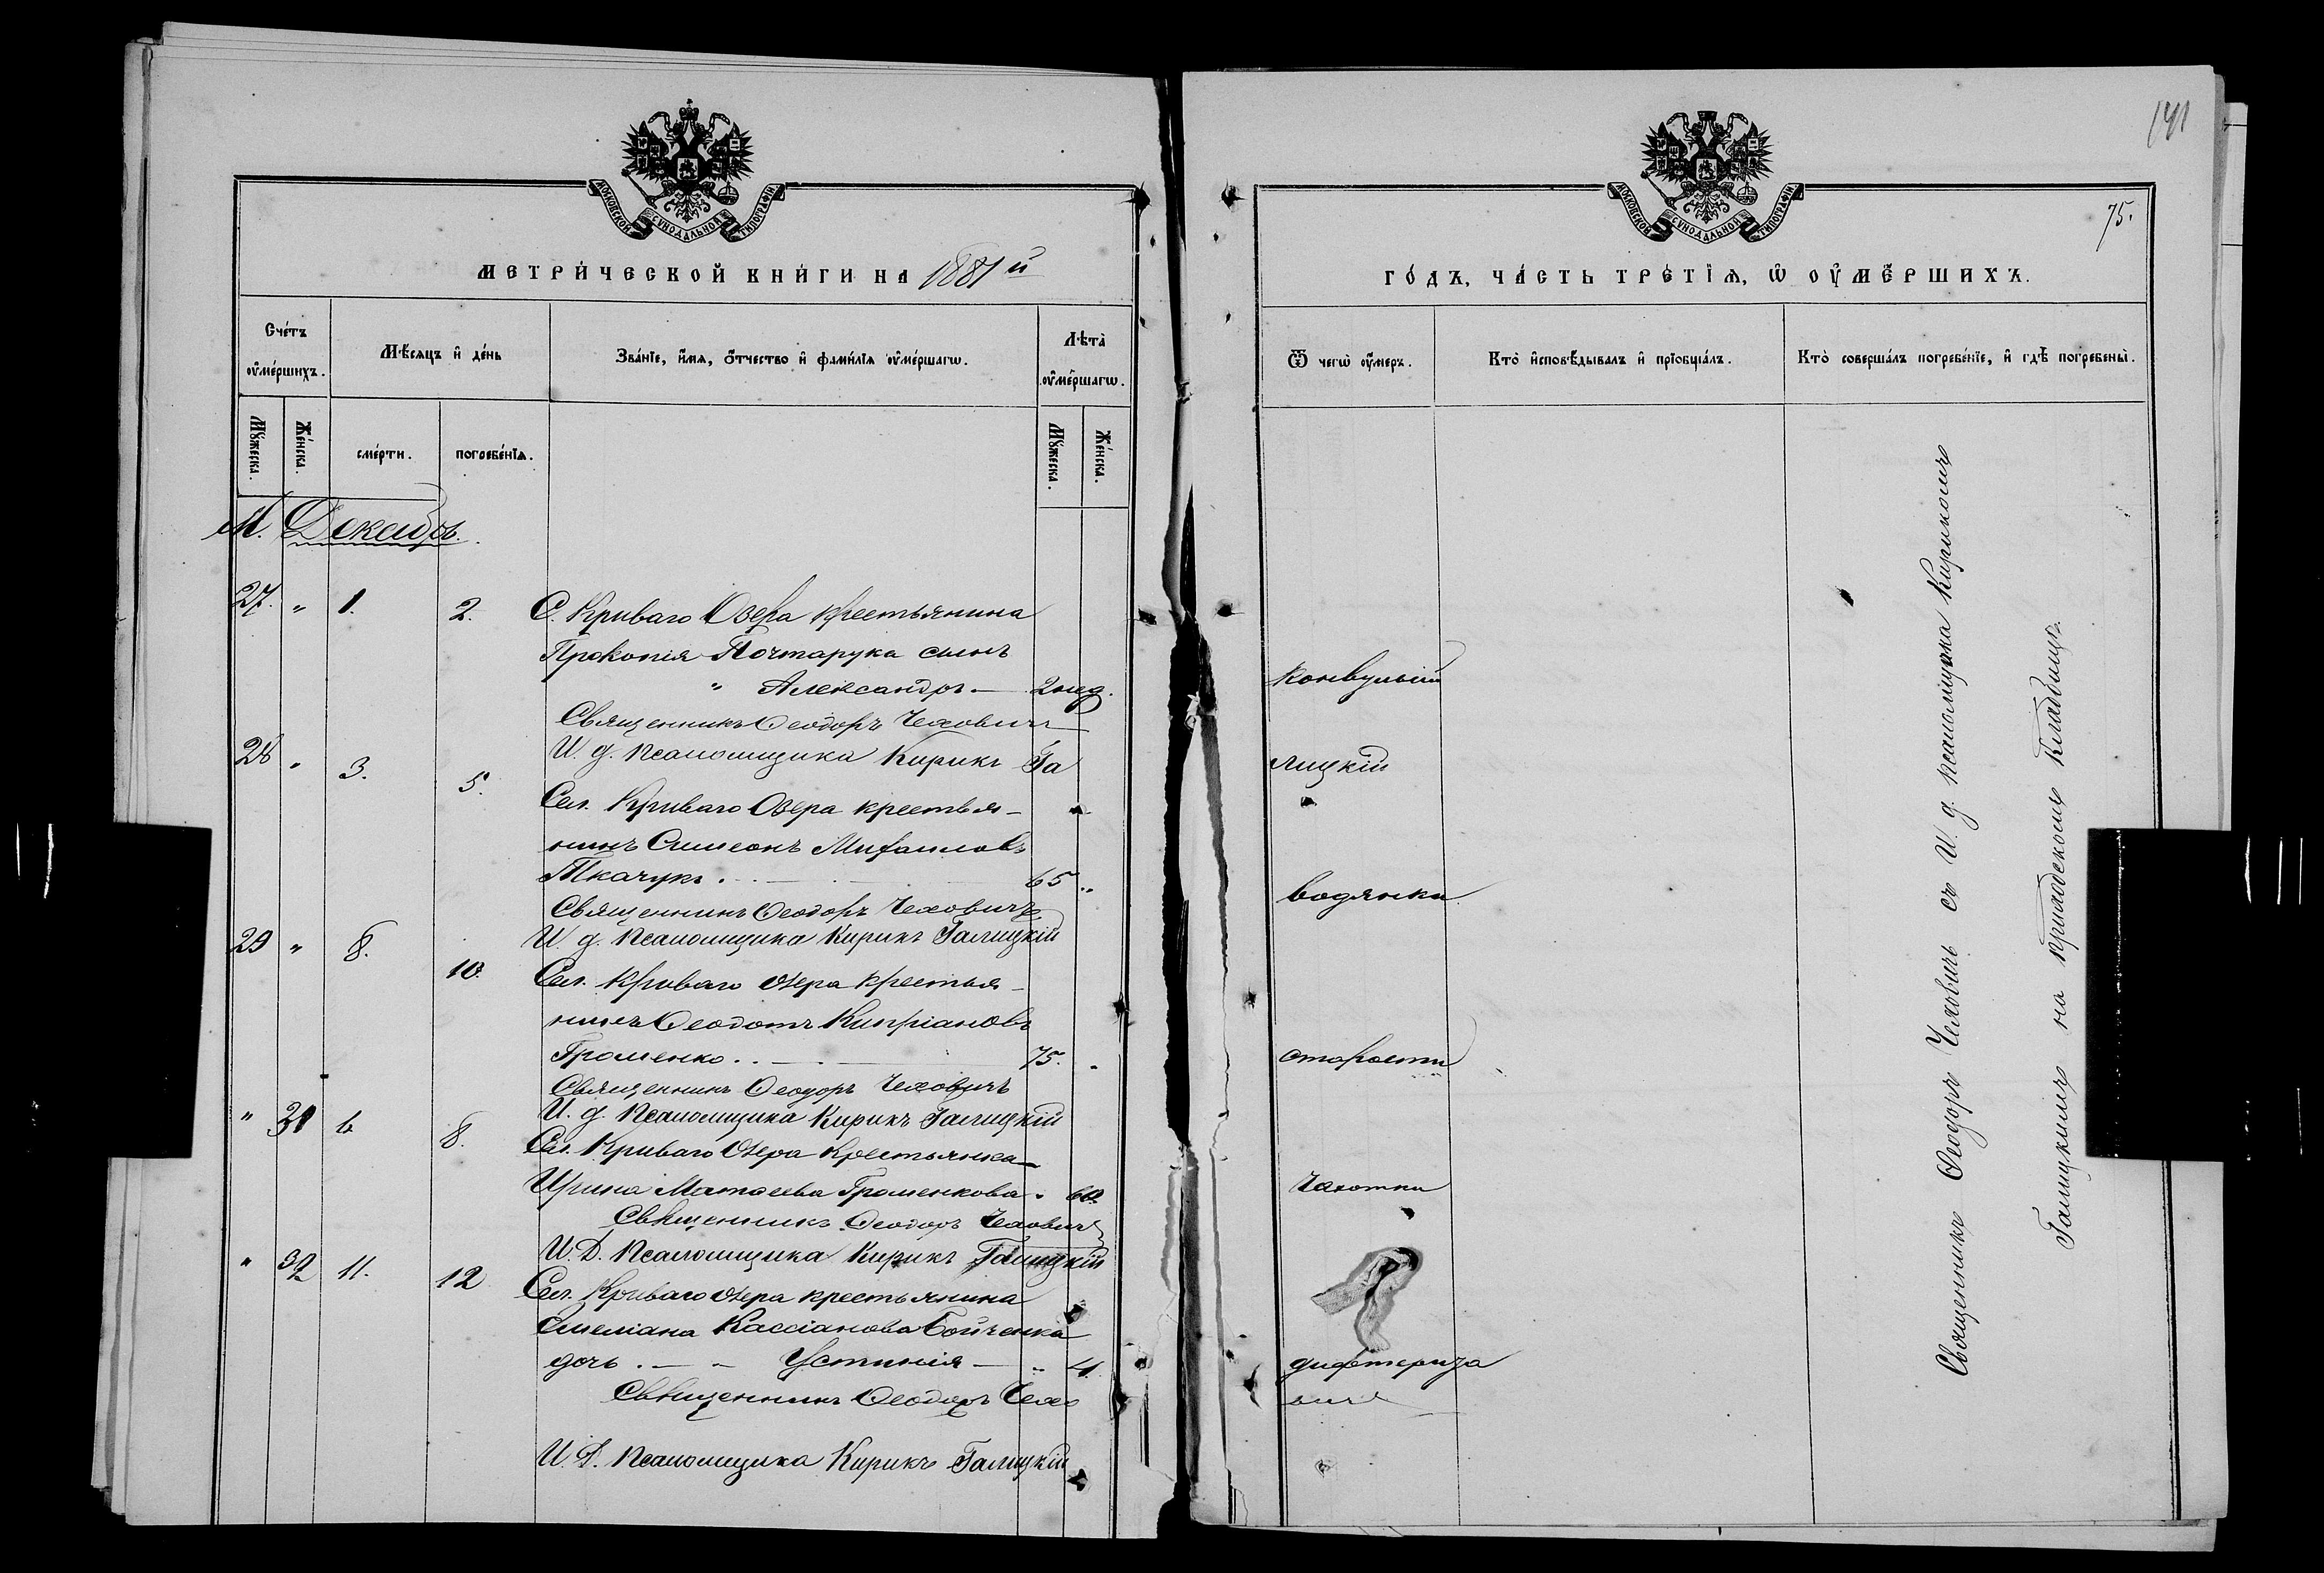 МОСКОВСКОЙ СѴНОДАЛЬНОЙ ТИПОГРАФІИ
МЕТРИ́ЧЕСКОЙ КНИ́ГИ НА 1881 й
Счétъ ᲂу҆ме́ршихъ.
Мѣ́сяцъ и҆ де́нь
Зва́нїе, и҆́мя, ѻ҆́тчество и҆ фами́лїя ᲂу҆ме́ршагѡ.
Лѣта̀ ᲂу҆ме́ршагѡ.
Мꙋ́жеска.
Же́нска.
сме́рти.
погребе́нїѧ.
Мꙋ́жеска.
Же́нска.
М. Декабрь.
27. " 1. 2. С. Криваго Озера крестьянина
Прокопія Почтарука сынъ
" Александръ — 2 нед.
Священникъ Ѳеодоръ Чеховичъ
И. д. псаломщика Кирикъ Га
28 " 3. 5. Сел. Криваго Озера крестья-
нинъ Симеонъ Михаиловъ
Ткачукъ . — 65 "
Священникъ Ѳеодоръ Чеховичъ
И. д. псаломщика Кирикъ Галицкій
29 " 8. 10. Сел. Криваго Озера крестья-
нинъ Ѳеодотъ Кипріановъ
Громенко . . — 75. "
Священникъ Ѳеодоръ Чеховичъ
И. д. псаломщика Кирикъ Галицкій
" 31 6 8. Сел. Криваго Озера крестьянка
Ирина Матѳеева Громенкова " 60.
Священникъ Ѳеодоръ Чеховичъ
И. Д. псаломщика Кирикъ Галицкій
" 32 11. 12 Сел. Криваго Озера крестьянина
Емеліана Кассіанова Бойченка
дочь . — Устинія — " 4.
Священникъ Ѳеодоръ Чехо
И. Д. псаломщика Кирикъ Галицкій
141
75.
МОСКОВСКОЙ СѴНОДАЛЬНОЙ ТИПОГРАФІИ
ГО́ДЪ, ЧА́СТЬ ТРЕ́ТЇѦ, Ѡ҆ ОУ҆МЕ́РШИХЪ.
Ѿ чегѡ̀ ᲂу҆́меръ.
Кто̀ и҆сповѣ́дывалъ и҆ прїобща́лъ.
Кто̀ соверша́лъ погребе́нїе, и҆ гдѣ̀ погребены̀.
конвульсій
лицкій
водянки
старости
чахотки
дифтерита
вичъ
Священникъ Ѳеодоръ Чеховичъ съ И. д. псаломщика Кирикомъ
Галицкимъ на приходскомъ кладбищѣ.